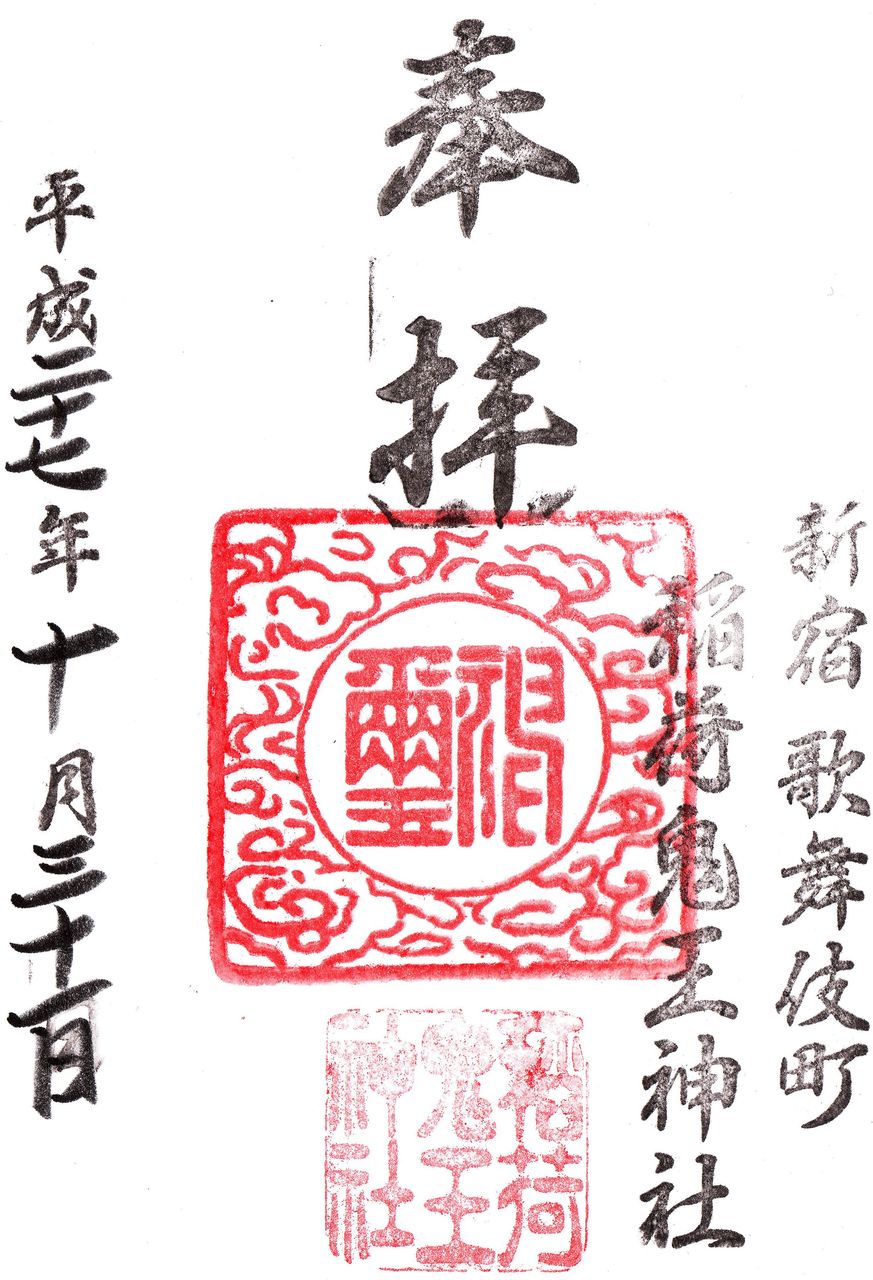 新宿歌舞伎町
稲荷鬼王神社
奉拝
神璽
稲荷
鬼王
神社
平成二十七年十月三十一日